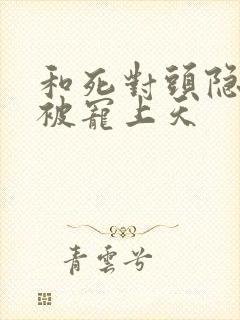 和死對頭隐
被寵上天
青雲兮